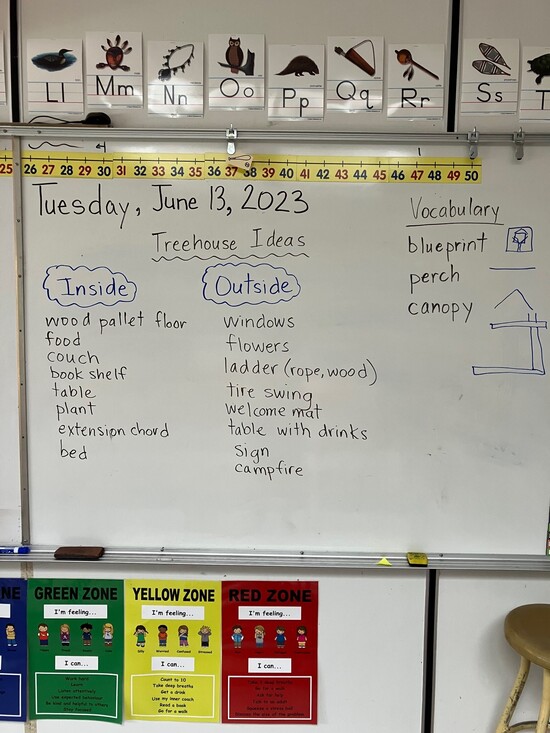 Ll
Mm
Nn
Oo
Pp
Qq
Rr
Ss
T
25 26 27 28 29 30 31 32 33 34 35 36 37 38 39 40 41 42 43 44 45 46 47 48 49 50
Tuesday, June 13, 2023
Treehouse Ideas
Inside
wood pallet floor
food
couch
book shelf
table
plant
extension chord
bed
Outside
windows
flowers
ladder (rope, wood)
tire swing
welcome mat
table with drinks
sign
campfire
Vocabulary
blueprint
perch
canopy
NE
GREEN ZONE
I'm feeling...
I can...
YELLOW ZONE
I'm feeling...
I can...
Count to 10
Take deep breaths
Get a drink
Use my inner coach
Read a book
Go for a walk
RED ZONE
I'm feeling...
I can...